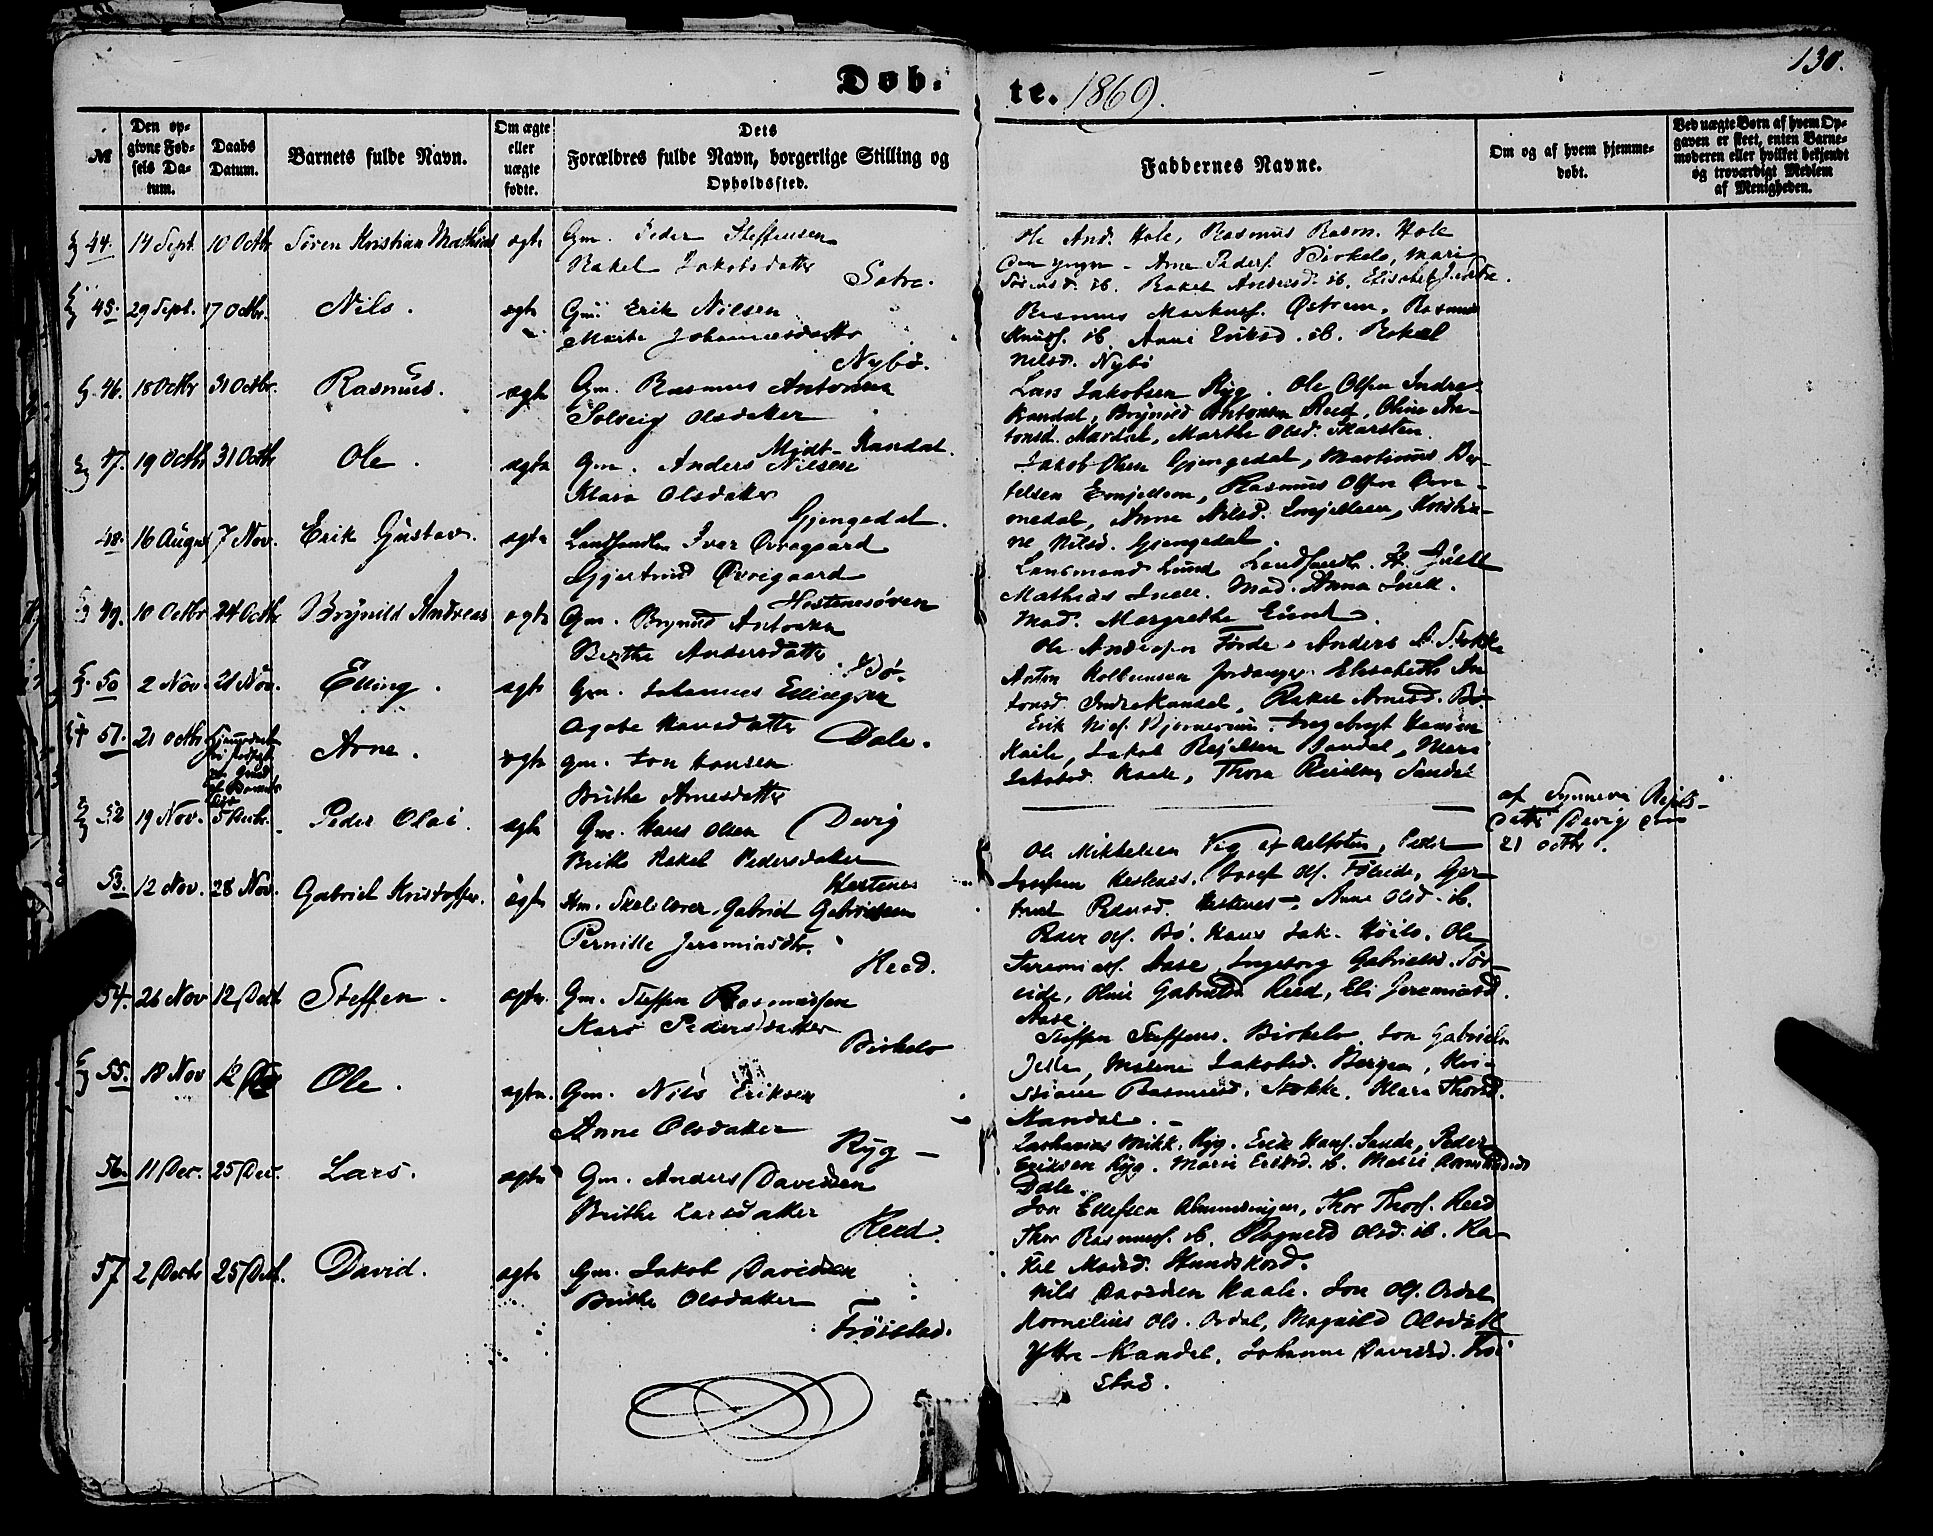 130.
Døb- te. 1869.
№
Den op-
givne Fød-
sels Da-
tum.
Daabs
Datum.
Barnets fulde Navn.
Om ægte
eller
uægte
fødte.
Dets
Forældres fulde Navn, borgerlige Stilling og
Opholdssted.
Faddernes Navne.
Om og af hvem hjemme-
døbt.
Ved uægte Børn af hvem Op-
gaven er skeet, enten Barne-
moderen eller hvilket bekjendt
og troværdigt Medlem
af Menigheden.
44. 14 Sept. 10 Octbr Søren Kristian Mathias ægte Gm. Peder Steffensen
Rakel Jakobsdatter
Sætre.
Ole And. Hole, Rasmus Rasm. Hole
den yngre - Arne Peders. Birkelo, Mari
Sørensd. ib. Rakel Andersd. ib. Elisabet
45. 29 Sept. 17 Octbr. Nils. ægte Gm. Erik Nilsen
Marte Johannesdatter
Nybø.
Rasmus Markuss. Østrem, Rasmus
Knuts. ib. Anne Eriksd. ib. Rakel
Nilsd. Nybø
46. 10 Octbr 31 Octbr. Rasmus. ægte Gm. Rasmus Antonsen
Solveig Olsdatter
Midt-Kandal.
Lars Jakobsen Ryg. Ole Olsen Indre-
kandal, Brynild Antonsen Reed, Oline An-
tonsd. Mardal, Marthe Olsd. Karsten
47. 19 Octbr 31 Octbr Ole. ægte Gm. Anders Nilsen
Klara Olsdatter
Gjengedal.
Jakob Olsen Gjengedal, Martinus Ber-
telsen Emjellem, Rasmus Olsen
medal, Anne Nilsd. Emjellem, Kristia-
ne Nilsd. Gjengedal.
48. 16 August 7 Nov. Erik Gustav. ægte Landhandler Iver Øvregaard
Gjertrud Øvregaard
Hestenesøren
Lensmand Lund, Landhandl. H. Juell
Mathias Juell. Mad. Anna Juell.
Mad. Margrethe Lund.
49. 10 Octbr 24 Octbr Brynild Andreas ægte Gm. Brynild Antonsen
Berthe Andersdatter
Bø.
Ole Andersen Førde, Anders A. Stokke
Anton Kolbensen Jordanger, Elisabeth An-
tonsd. Indre Kandal, Rakel Arnesd. Bø-
50 2 Nov. 21 Nov. Elling. ægte Gm. Johannes Ellingsen
Agate Hansdatter Dale.
Erik Nies. Bjørnereim. Ingebrigt Hansen
Kaale, Jakob Rejelsen Sandal, Mari
Jakobsd. Kaale, Thora Sandal
51. 21 Octbr Arne. ægte Gm. Jon Hansen
Brithe Arnesdatter
Devig
af Synneva Rejels-
datter Devig den
21 Octbr.
52 19 Nov. 5 Decbr. Peder Olai. ægte Gm. Hans Olsen
Brithe Rakel Pedersdatter
Hestenes
Ole Mikkelsen Vig af Aalfoten, Peder
Josefsen Hestenes. Josef Ols. Føleide, Gjer-
trud Pedersd. Hestenes -, Anne Olsd. ib.
53. 12 Nov. 28 Nov. Gabriel Kristoffer. ægte Hm. Skolelærer Gabriel Gabrielsen
Pernille Jeremiasdtr.
Reed.
Peder Ols. Bø. Hans Jak. Høilo. Ole
Jeremiass. Aase, Ingeborg Gabrielsd. Tør-
eide, Oline Gabrielsd. Reed, Eli Jeremiasd.
Aase
54. 26 Nov 12 Decb. Steffen. ægte. Gm. Steffen Rasmussen
Kari Pedersdatter
Birkelo
Steffen Steffens. Birkelo. Jon Gabriels.
Malene Jakobsd. Bergen, Kri-
stiane Rasmusd. Stokke. Klara Thorsd.
Kandal. -
55. 18 Nov 12 Dec Ole. ægte. Gm. Nils Eriksen
Anne Olsdatter
Ryg -
Zacharias Mikk. Ryg. Erik Hans. Sande, Peder
Eriksen Ryg. Marie Eriksd. ib. Marie
Dale.
56. 11 Dec. 25 Dec. Lars. ægte Gm. Anders Davidsen
Brithe Larsdatter
Reed.
Jon Ellefsen Almenningen, Thor Thors. Reed
Thor Rasmuss. ib. Ragnild Olsd. ib. Ra-
kel Madsd. Hundskord.
57 2 Decbr 25 Decb. David. ægte Gm. Jakob Davidsen
Brithe Olsdatter
Frøistad.
Nils Davidsen Kaale. Jon Ols. Ordal
Kornelius Ols. Ordal, Magnild Olsdatt
Ytre-Kandal, Johanne Davidsd. Frøi-
stad.